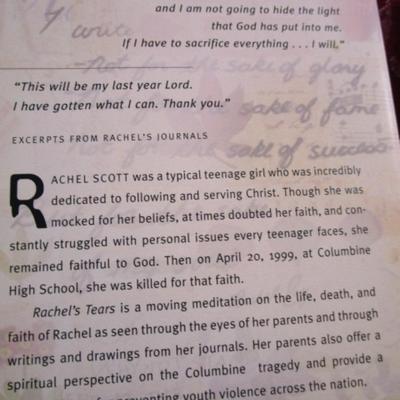 and I am not going to hide the light
that God has put into me.
If I have to sacrifice everything . . . I will."
write
not for the sake of glory
"This will be my last year Lord.
I have gotten what I can. Thank you."
sake of fame
EXCERPTS FROM RACHEL'S JOURNALS
for the sake of success
RACHEL SCOTT was a typical teenage girl who was incredibly
dedicated to following and serving Christ. Though she was
mocked for her beliefs, at times doubted her faith, and con-
stantly struggled with personal issues every teenager faces, she
remained faithful to God. Then on April 20, 1999, at Columbine
High School, she was killed for that faith.
Rachel's Tears is a moving meditation on the life, death, and
faith of Rachel as seen through the eyes of her parents and through
writings and drawings from her journals. Her parents also offer a
spiritual perspective on the Columbine tragedy and provide a
for preventing youth violence across the nation.